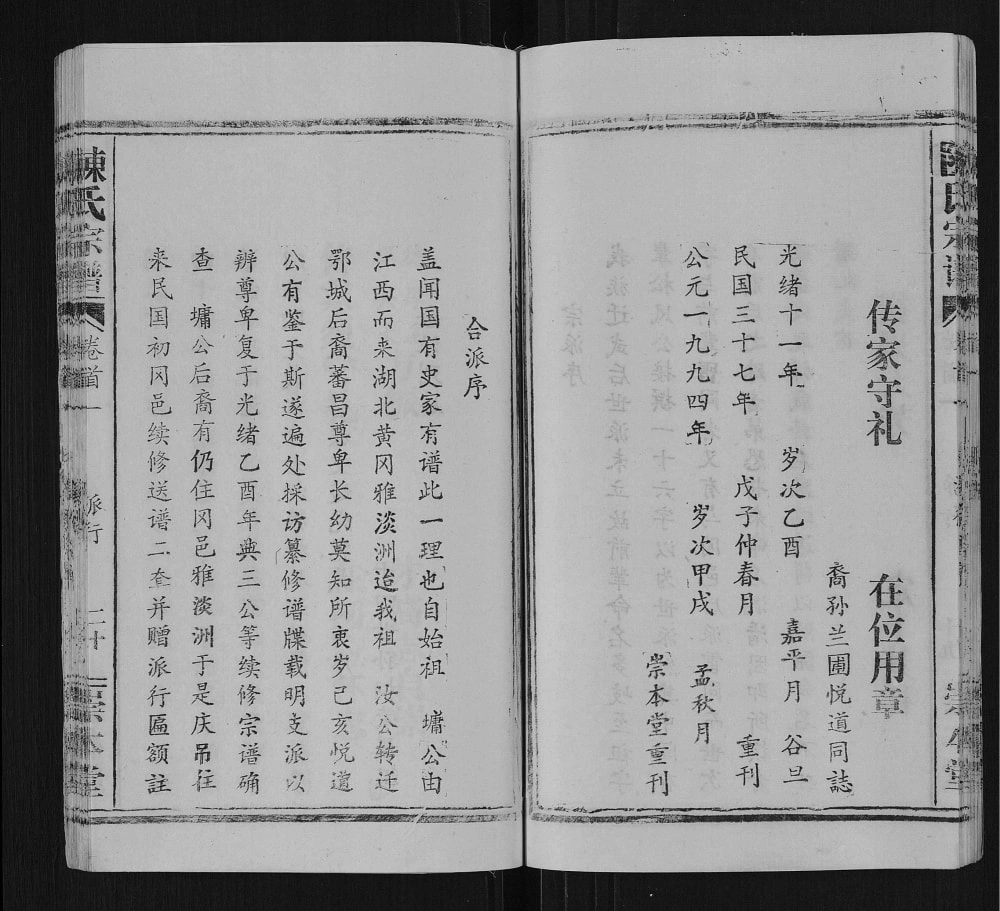 陳氏宗譜
卷首
传家守礼 在位用章
裔孙兰圃悦道同誌
光绪十一年 岁次乙酉 嘉平月 谷旦
民国三十七年 戊子仲春月 重刊
公元一九九四年 岁次甲戌 孟秋月
崇本堂重刊
合派序
盖闻国有史家有谱此一理也自始祖 墉公由
江西而来湖北黄冈雅淡洲迨我祖 汝公转迁
鄂城后裔蕃昌尊卑长幼莫知所衷岁己亥悦道
公有鉴于斯遂遍处採访纂修谱牒载明支派以
辨尊卑复于光绪乙酉年典三公等续修宗谱确
查 墉公后裔有仍住冈邑雅淡洲于是庆吊往
来民国初冈邑续修送谱二套并赠派行匾额註
陳氏宗譜
卷首一
派行
二十
崇本堂